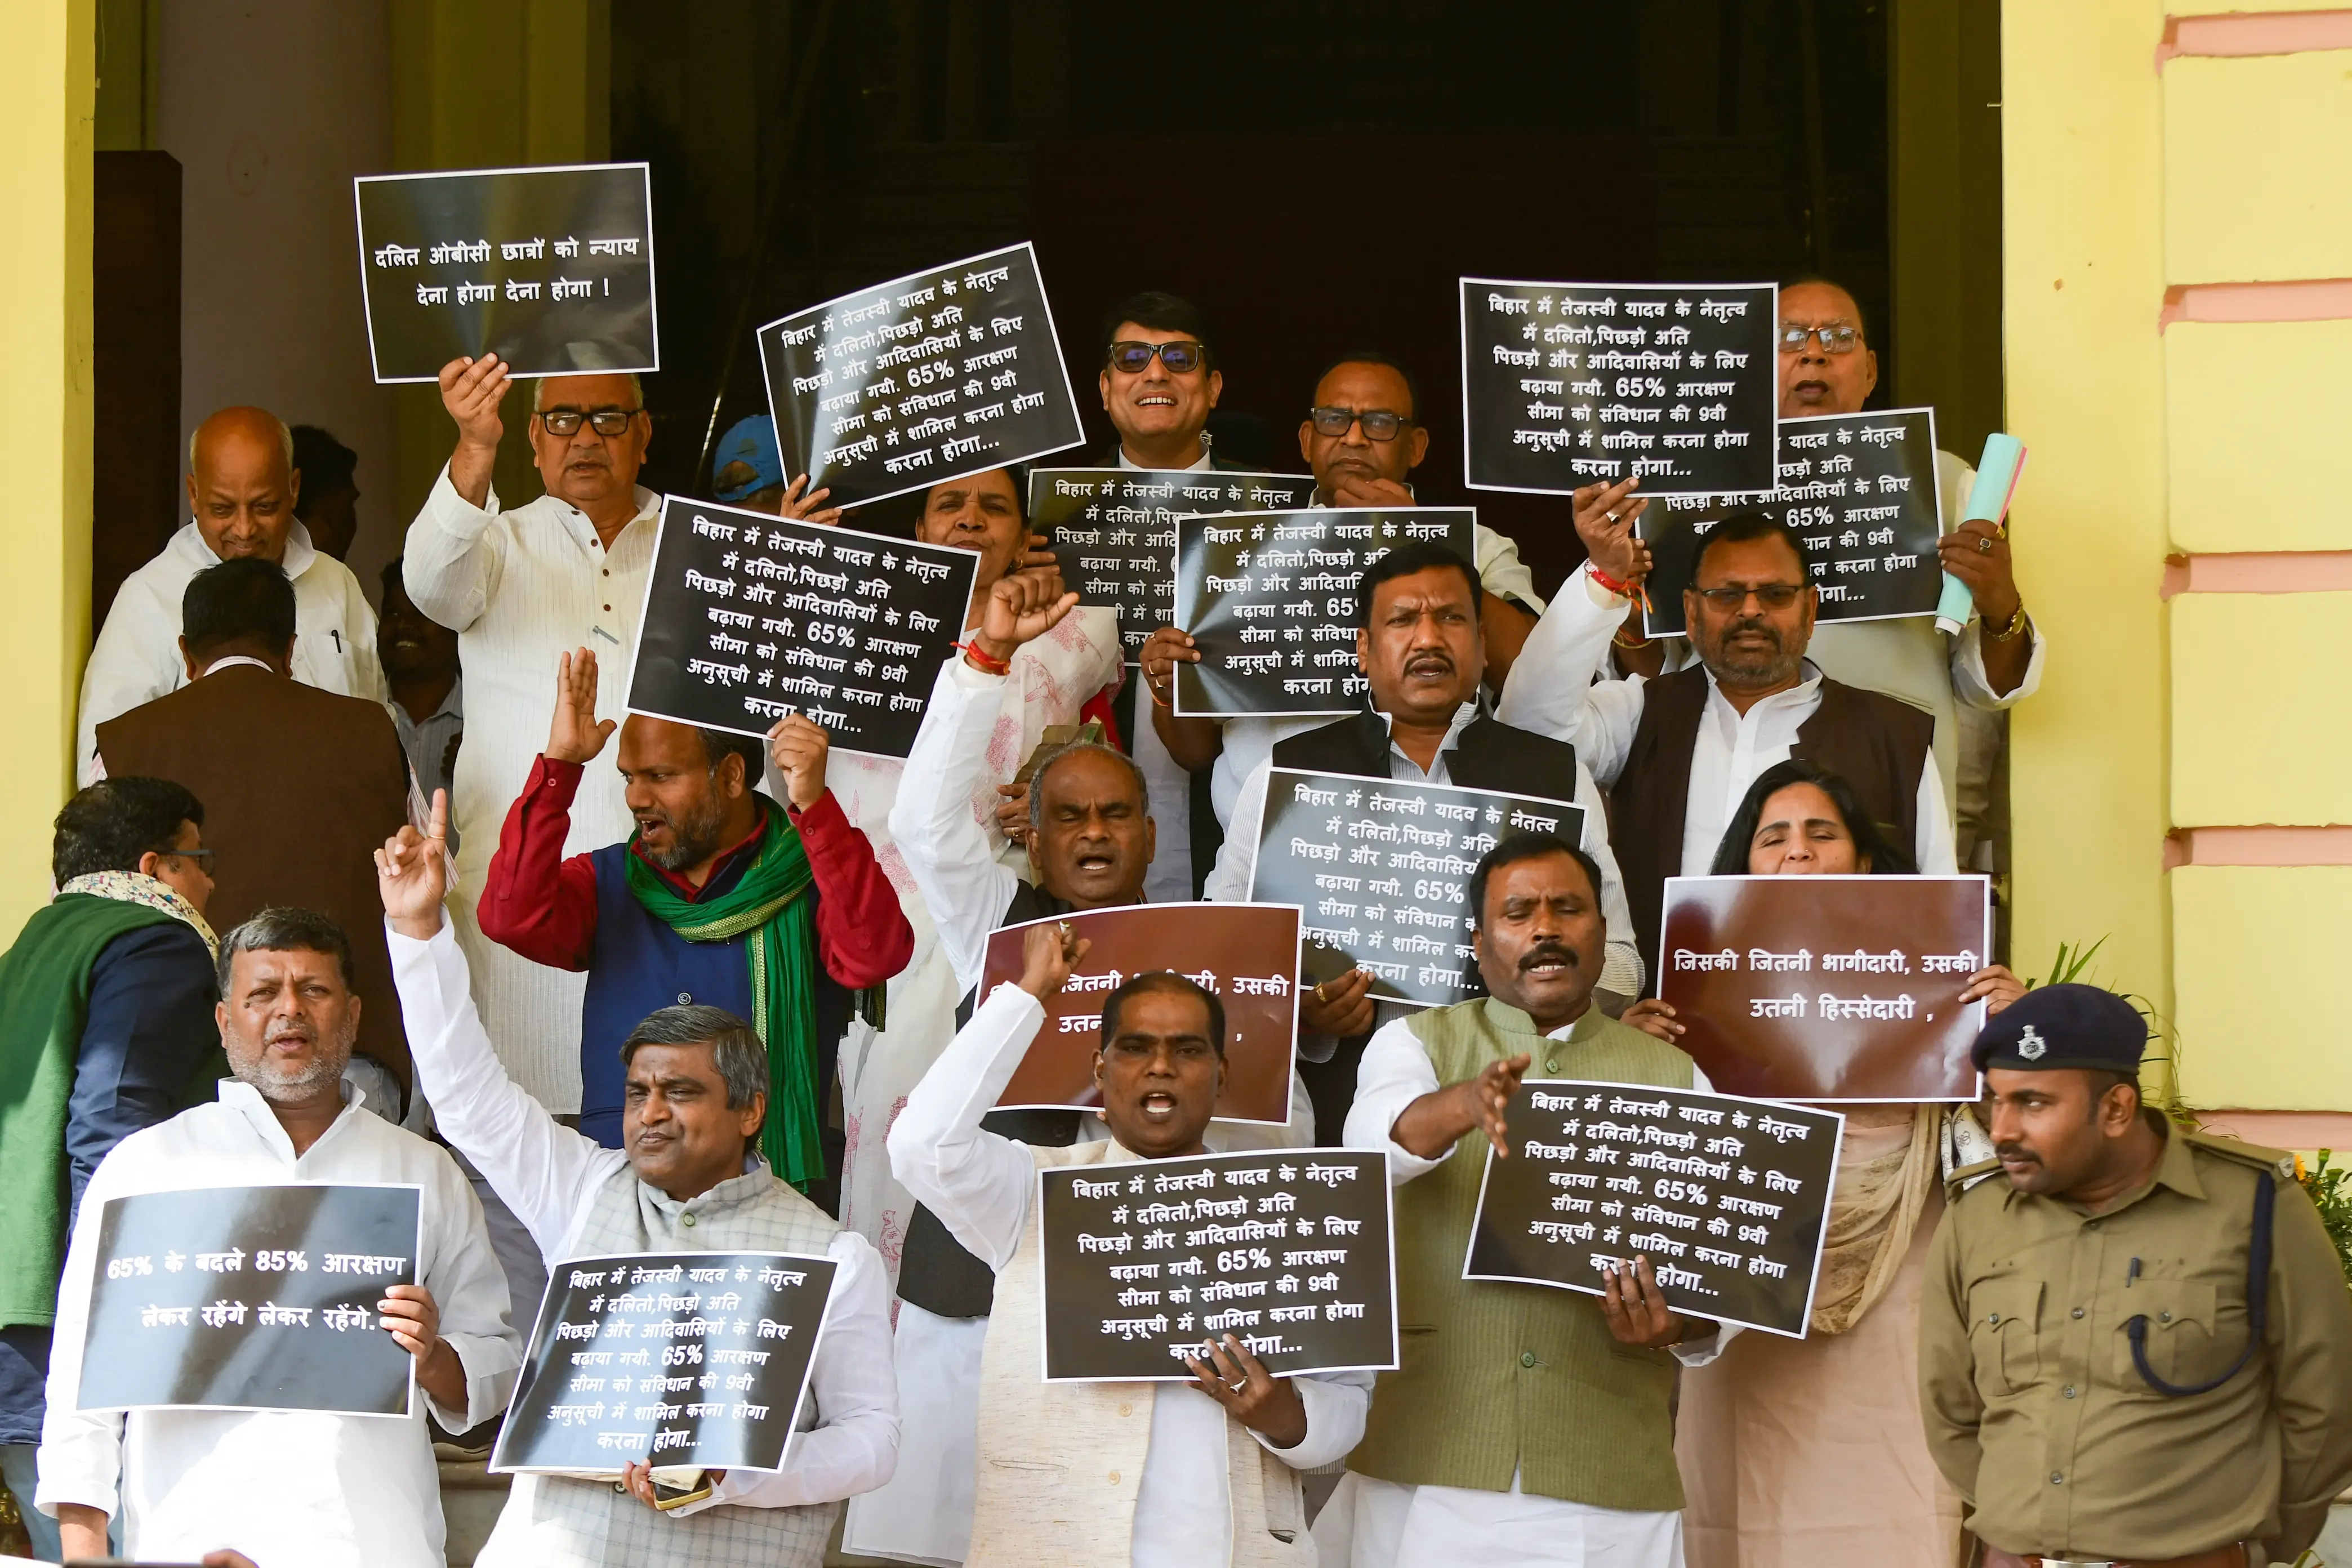 दलित ओबीसी छात्रों को न्याय
देना होगा देना होगा !
बिहार में तेजस्वी यादव के नेतृत्व
में दलितो,पिछड़ो अति
पिछड़ो और आदिवासियों के लिए
बढ़ाया गयी. 65% आरक्षण
सीमा को संविधान की 9वी
अनुसूची में शामिल करना होगा
करना होगा...
बिहार में तेजस्वी यादव के नेतृत्व
में दलितो,पिछड़ो अति
पिछड़ो और आदिवासियों के लिए
बढ़ाया गयी. 65% आरक्षण
सीमा को संविधान की 9वी
अनुसूची में शामिल करना होगा
करना होगा...
यादव के नेतृत्व
अति
पिछड़ो और आदिवासियों के लिए
65% आरक्षण
की 9वी
करना होगा
बिहार में तेजस्वी यादव के नेतृत्व
में दलितो
पिछड़ो और
बढ़ाया गयी.
सीमा को
बिहार में तेजस्वी यादव के नेतृत्व
में दलितो,पिछड़ो अति
पिछड़ो और आदिवासियों के लिए
बढ़ाया गयी. 65% आरक्षण
सीमा को संविधान की 9वी
अनुसूची में शामिल करना होगा
करना होगा...
बिहार में तेजस्वी यादव के नेतृत्व
में दलितो,पिछड़ो
पिछड़ो और
बढ़ाया गयी. 65
सीमा को संविधान
अनुसूची में
करना
बिहार में तेजस्वी यादव के
में दलितो,पिछड़ो अति
पिछड़ो और
बढ़ाया गयी. 65%
सीमा को संविधान
अनुसूची में शामिल
करना होगा...
जितनी उसकी
जिसकी जितनी भागीदारी, उसकी
उतनी हिस्सेदारी ,
बिहार में तेजस्वी यादव के नेतृत्व
में दलितो,पिछड़ो अति
पिछड़ो और आदिवासियों के लिए
बढ़ाया गयी. 65% आरक्षण
सीमा को संविधान की 9वी
अनुसूची में शामिल करना होगा
होगा...
65% के बदले 85% आरक्षण
लेकर रहेंगे लेकर रहेंगे.
बिहार में तेजस्वी यादव के नेतृत्व
में दलितो,पिछड़ो अति
पिछड़ो और आदिवासियों के लिए
बढ़ाया गयी. 65% आरक्षण
सीमा को संविधान की 9वी
अनुसूची में शामिल करना होगा
करना होगा...
बिहार में तेजस्वी यादव के नेतृत्व
में दलितो,पिछड़ो अति
पिछड़ो और आदिवासियों के लिए
बढ़ाया गयी. 65% आरक्षण
सीमा को संविधान की 9वी
अनुसूची में शामिल करना होगा